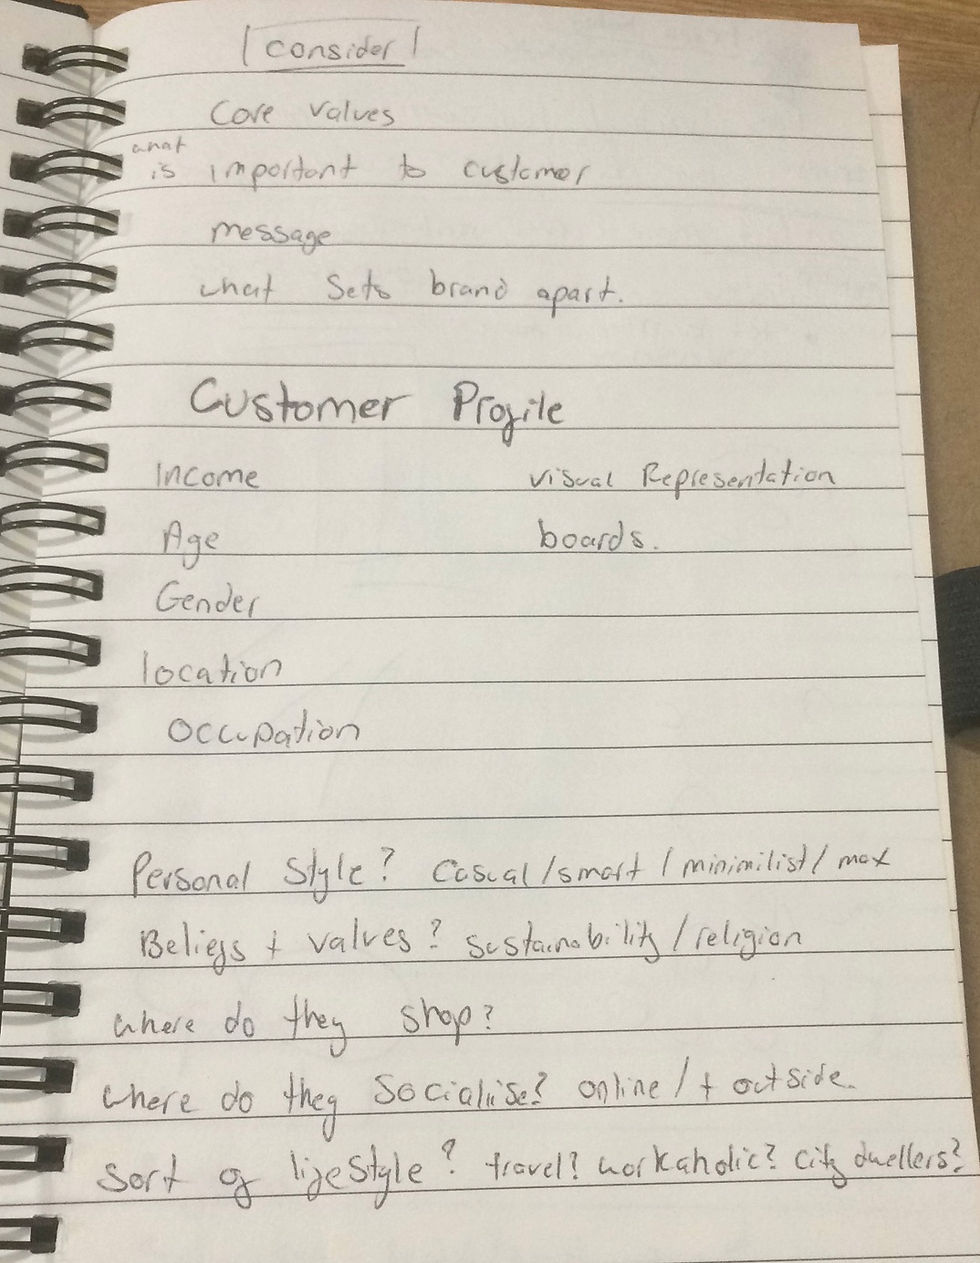 consider
Core values
what
is important to customer
message
what sets brand apart.
Customer Profile
Income
visual Representation
Age
boards.
Gender
location
occupation
Personal Style? Casual/smart/minimilist/max
Beliefs + values? sustainability/religion
where do they shop?
where do they Socialise? online/+ outside.
Sort of lifestyle? travel? workaholic? city dwellers?